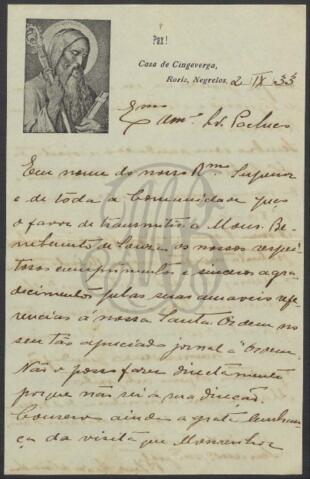 Pax!
Casa de Cingeverga,
Roriz, Negrelos, 2 IX 33
Exmo
Amo. Sr. Pacheco
Em nome do nosso Rmo Superior
e de toda a Comunidade peço
o favor de transmitir a Mons. Be-
nevenuto de Souza os nossos respei-
tosos cumprimentos e sinceros agra-
decimentos pelas suas amaveis refe-
rencias á nossa Santa Ordem no
seu tão apreciado jornal "A Ordem".
Não o posso fazer directamente
porque não sei a sua direcção.
Conservo ainda a grata lembran-
ça da visita que Monsenhor